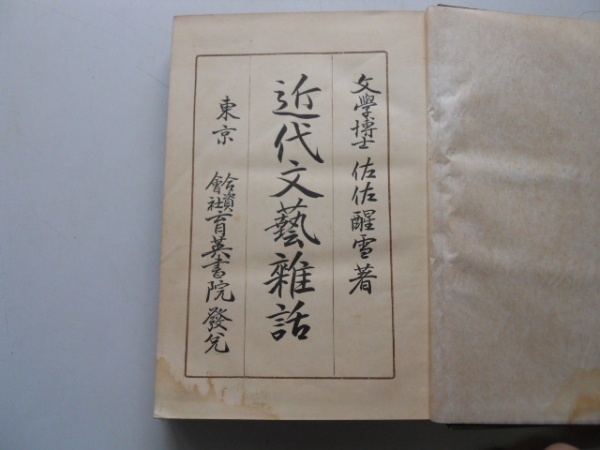 文學博士 佐佐醒雪著
近代文藝雜話
東京 合資會社育英書院發兌